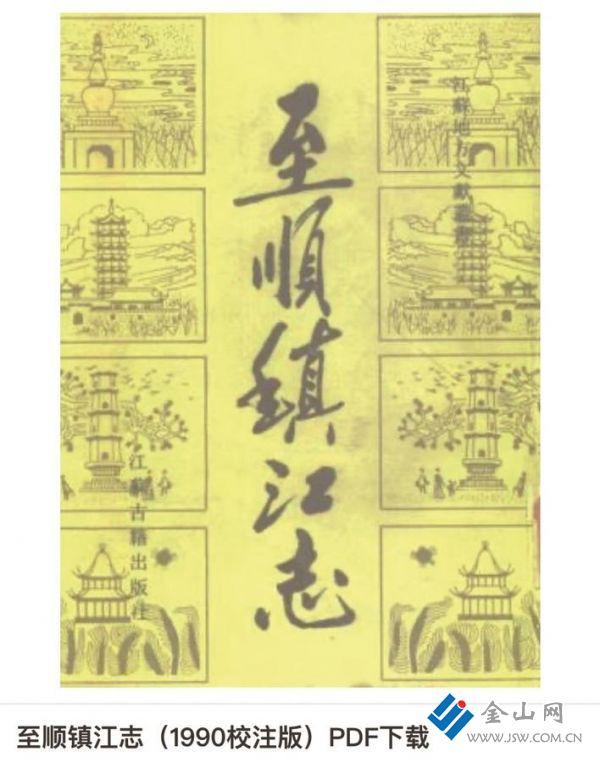 江蘇地方文獻叢書
至順鎮江志
江蘇古籍出版社
至顺镇江志（1990校注版）PDF下载
金山网
www.JSW.COM.CN